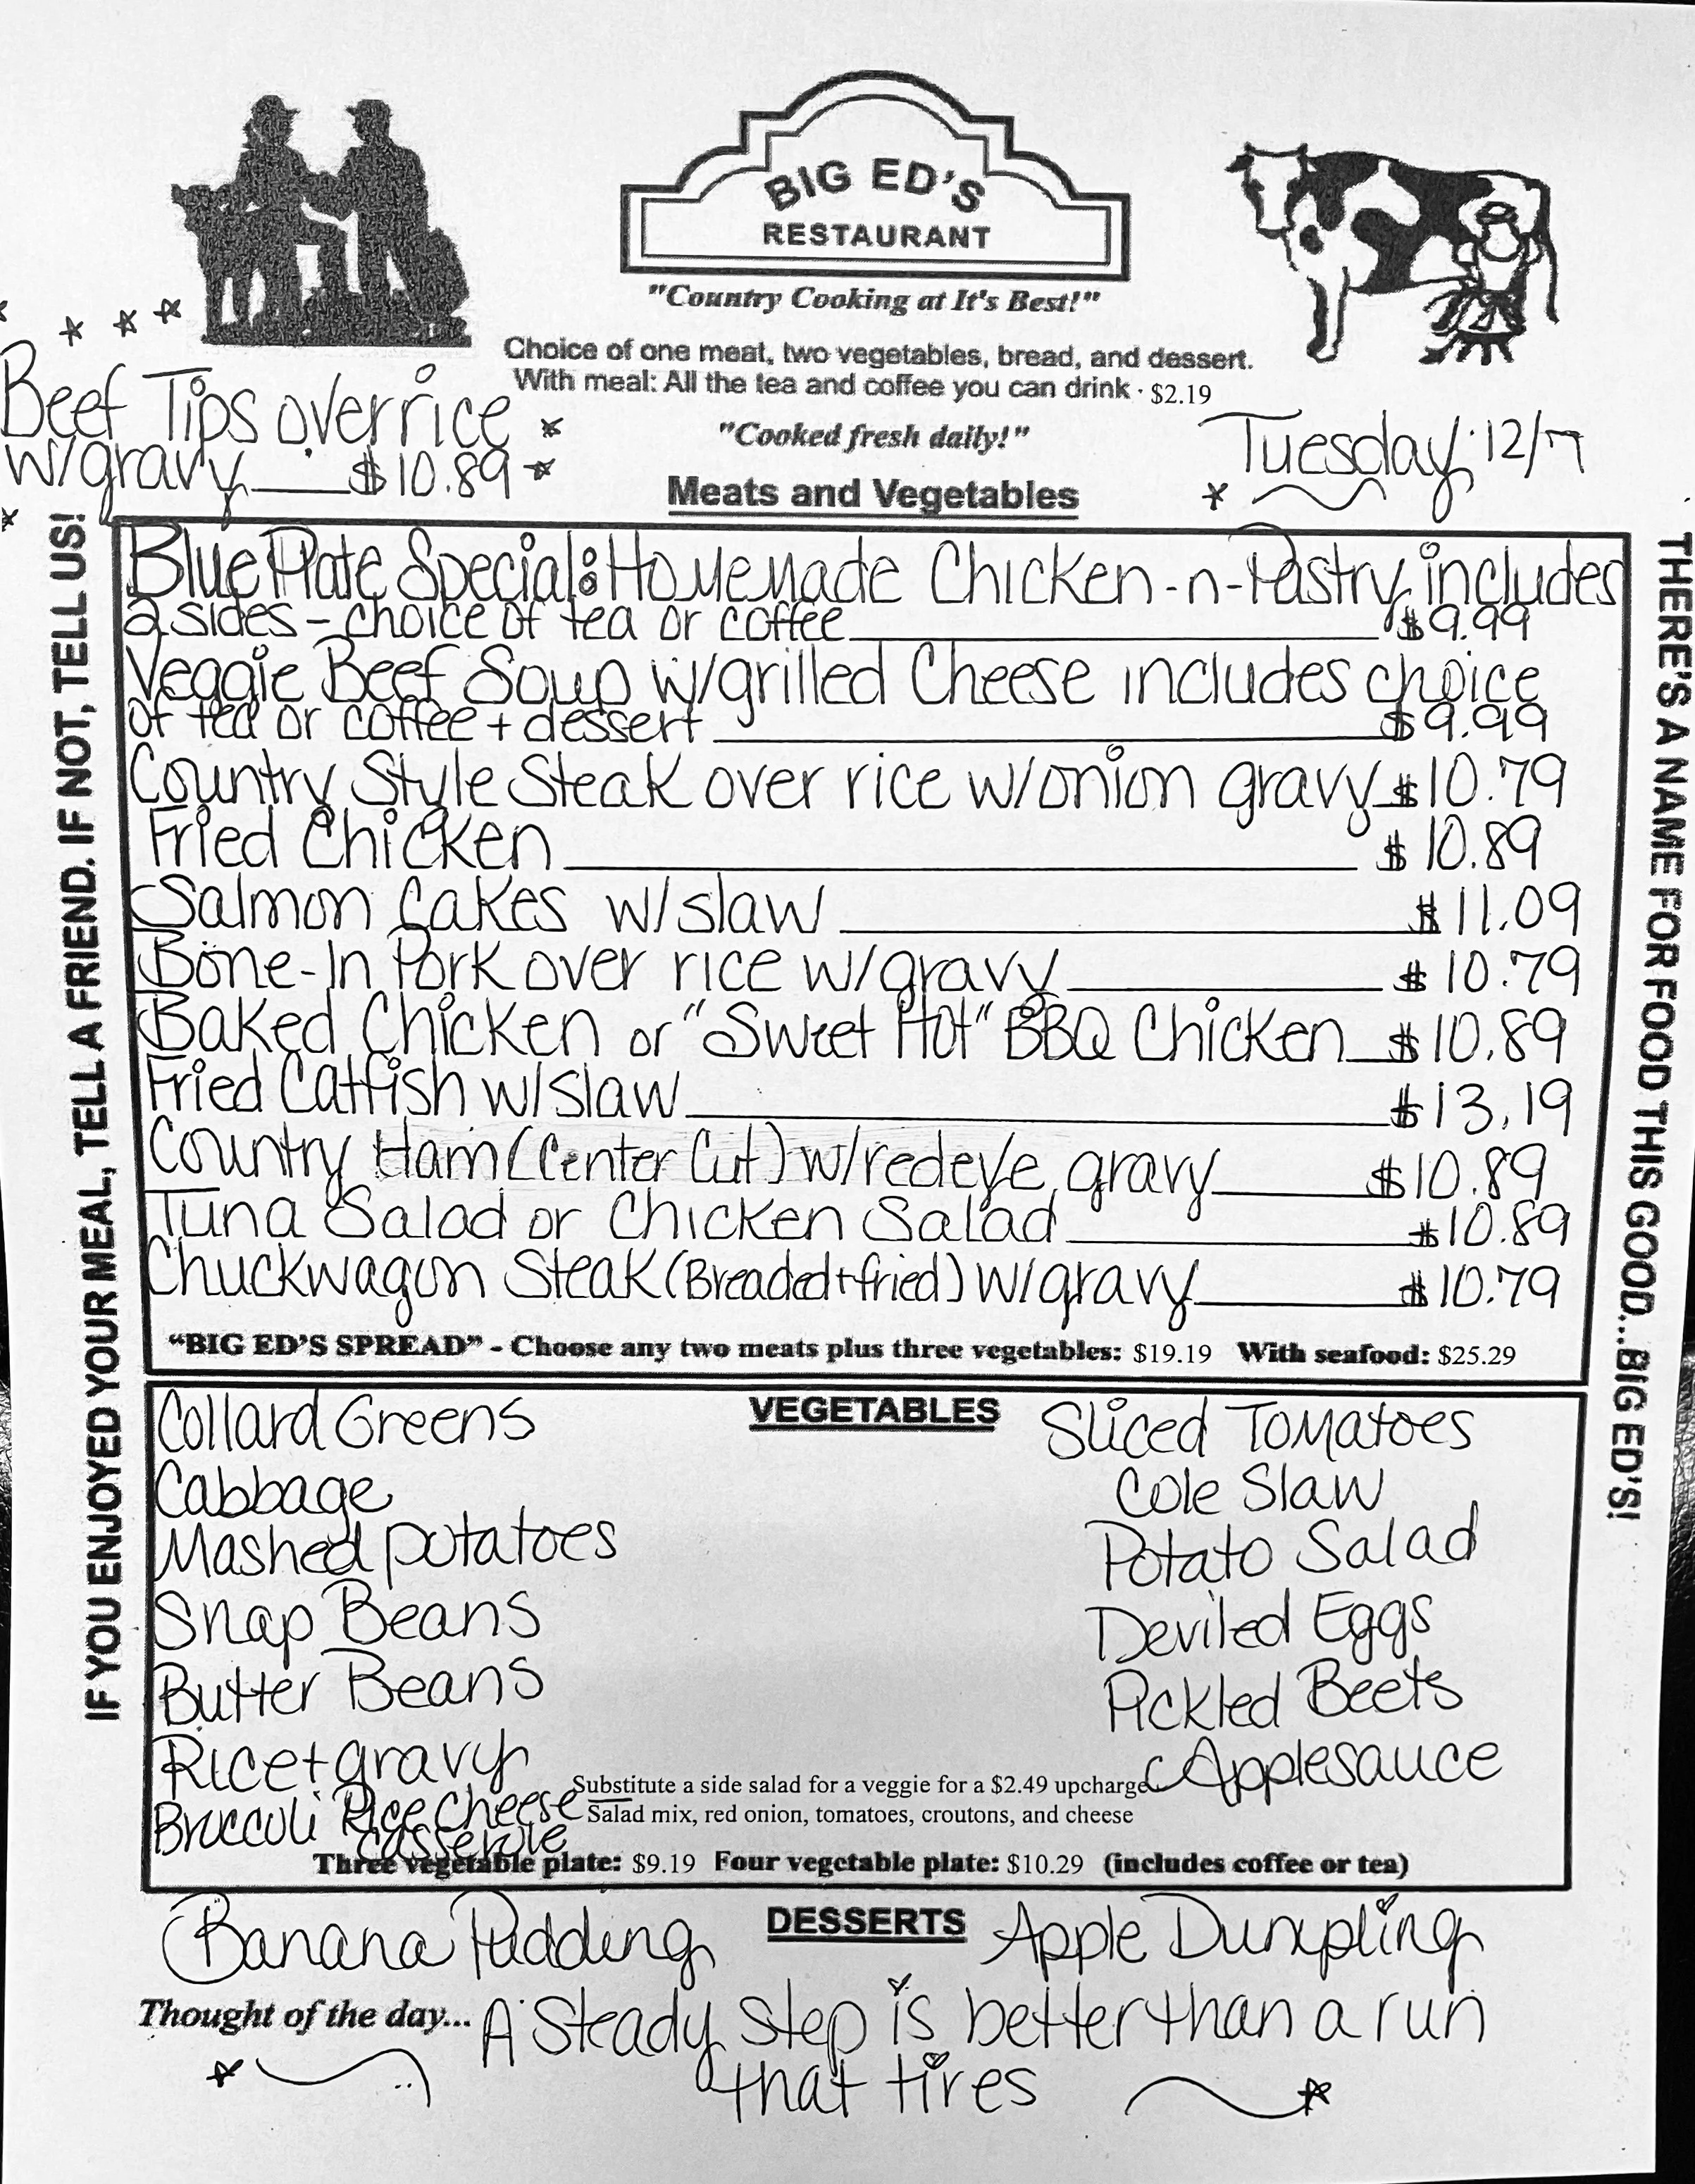 BIG ED'S
RESTAURANT
"Country Cooking at It's Best!"
Choice of one meat, two vegetables, bread, and dessert.
With meal: All the tea and coffee you can drink · $2.19
"Cooked fresh daily!"
Beef Tips over rice
w/gravy $10.89
Tuesday 12/7
Meats and Vegetables
Blue Plate Special: Homemade Chicken-n-Pastry includes
2 sides - choice of tea or coffee $9.99
Veggie Beef Soup w/grilled Cheese includes choice
of tea or coffee + dessert $9.99
Country Style Steak over rice w/onion gravy $10.79
Fried Chicken $10.89
Salmon Cakes w/slaw $11.09
Bone-In Pork over rice w/gravy $10.79
Baked Chicken or "Sweet Hot" BBQ Chicken $10.89
Fried Catfish w/slaw $13.19
Country Ham (Center Cut) w/redeye gravy $10.89
Tuna Salad or Chicken Salad $10.89
Chuckwagon Steak (Breaded + fried) w/gravy $10.79
"BIG ED'S SPREAD" - Choose any two meats plus three vegetables: $19.19 With seafood: $25.29
VEGETABLES
Collard Greens
Cabbage
Mashed potatoes
Snap Beans
Butter Beans
Rice + gravy
Broccoli Rice Cheese
casserole
Sliced Tomatoes
Cole Slaw
Potato Salad
Deviled Eggs
Pickled Beets
Applesauce
Substitute a side salad for a veggie for a $2.49 upcharge
Salad mix, red onion, tomatoes, croutons, and cheese
Three vegetable plate: $9.19 Four vegetable plate: $10.29 (includes coffee or tea)
DESSERTS
Banana Pudding
Apple Dumpling
Thought of the day... A Steady step is better than a run
that tires
IF YOU ENJOYED YOUR MEAL, TELL A FRIEND. IF NOT, TELL US!
THERE'S A NAME FOR FOOD THIS GOOD...BIG ED'S!